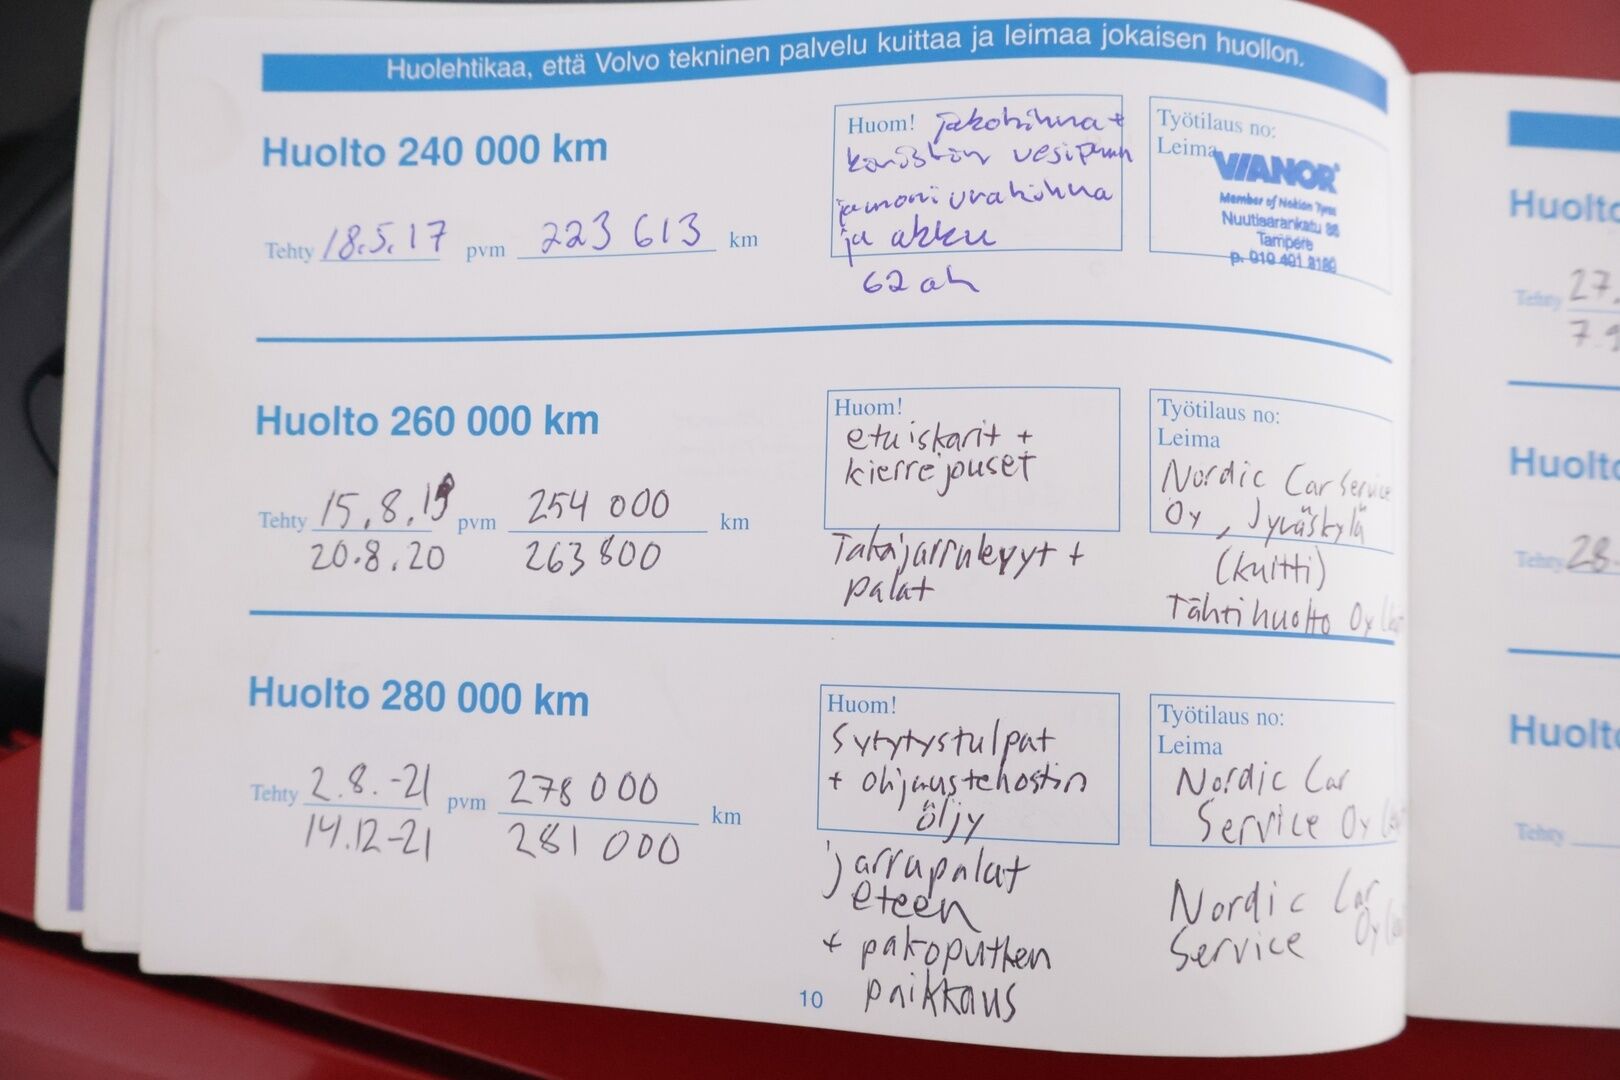 Huolehtikaa, että Volvo tekninen palvelu kuittaa ja leimaa jokaisen huollon.
Huolto 240 000 km
Tehty 18.5.17 pvm 223 613 km
Huom! jakohihna +
koneiston vesipum
ja moniurahihna
ja akku
62 ah
Työtilaus no:
Leima
VIANOR
Member of Nokian Tyres
Nuutisarankatu 
Tampere
p. 010 401 
Huolto 260 000 km
Tehty 15.8.19 pvm 254 000 km
20.8.20 263 800
Huom!
etuiskarit +
kierrejouset
Takajarrulevyt +
palat
Työtilaus no:
Leima
Nordic Car Service
Oy, Jyväskylä
(kuitti)
Tähtihuolto Oy
Huolto 280 000 km
Tehty 2.8.-21 pvm 278 000 km
14.12-21 281 000
Huom!
Sytytystulpat
+ ohjaustehostin
öljy
jarrupalat
eteen
+ pakoputken
paikkaus
Työtilaus no:
Leima
Nordic Car
Service Oy
Nordic Car
Service Oy
10
Tehty 27.
7.9
Tehty 28.
Tehty